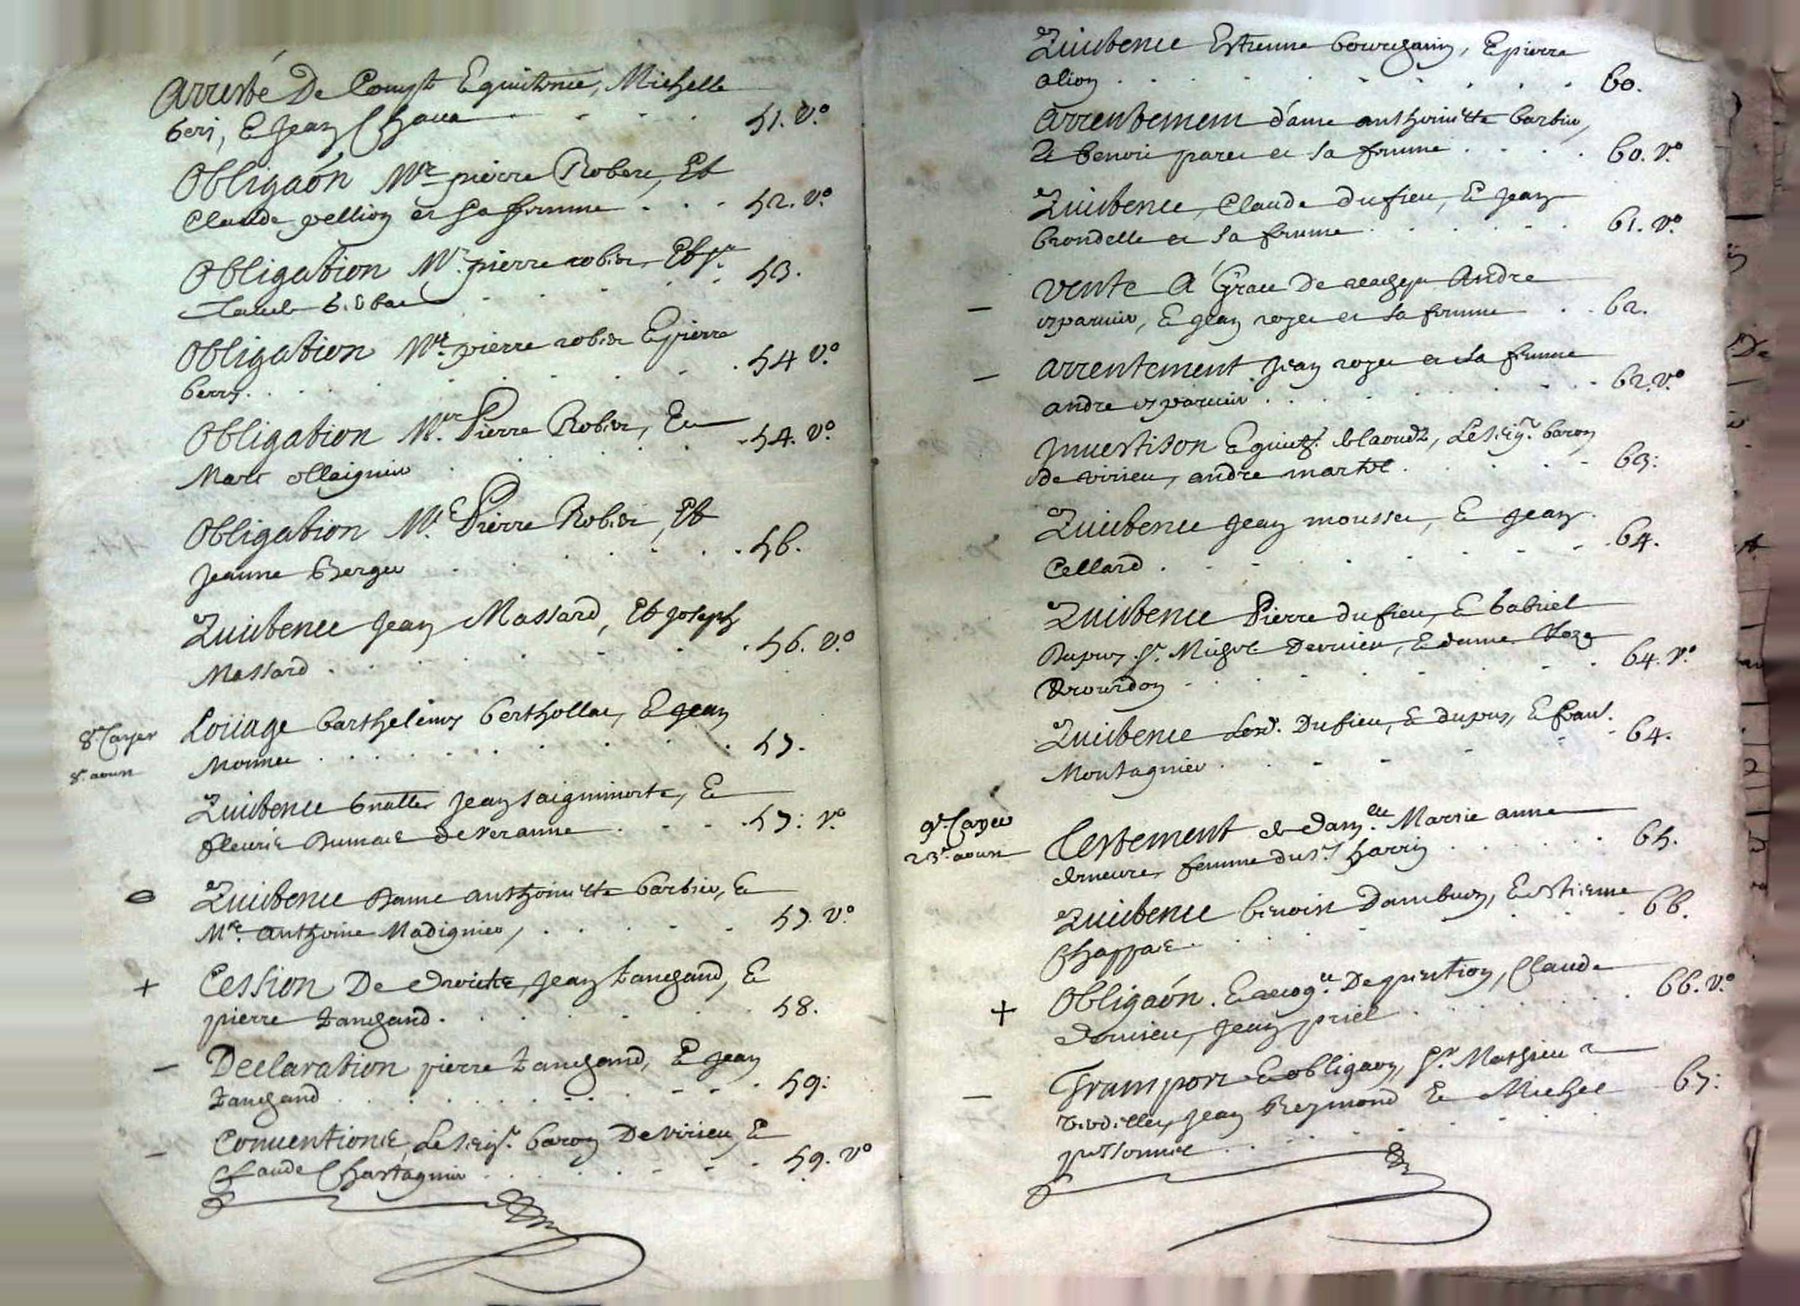 Arresté De Compt Equittance, Michelle
beri, E Jean Chava . . . . 51. v.°
Obligaôn Mre pierre Robert, Et
Claude pellion et sa femme . . . 52. v.°
Obligation Mr. pierre robert Et Sr.
. . . . 53.
Obligation Mre pierre robert E pierre
berry . . . . . . . 54 v.°
Obligation Mre Pierre Robert, Et
Marc ollaignier . . . . 54. v.°
Obligation Mre Pierre Robert, Et
Jeanne Berger . . . . . 56.
Quittence Jean Massard, Et Joseph
Massard . . . . . . . 56. v.°
8e Cayer
8e aoust
Loüage barthelemy berthollat, E Jean
Monnet . . . . . . . 57.
Quittence Jean saignimorte, E
fleurie Dumas de veranne . . . . 57. v.°
Quittence Dame anthoinette barbier, E
Mre. Anthoine Madignier, . . . . 57. v.°
+ Cession De droits, Jean tangand, E
pierre tangand . . . . . . 58.
– Declaration pierre tangand, E Jean
tangand . . . . . . . 59.
– Conventions, Le seigr. baron De virieu, E
Claude Chastagnier . . . . . 59. v°
Quittence Estienne bourgarin, E pierre
alion . . . . . . . 60.
Arrentement dame anthoinette barbier,
et benoit paret et sa femme . . . . 60. v.°
Quittence, Claude dufieu, E Jean
brondelle et sa femme . . . . . 61. v.°
– Vente A Grace De rachept Andre
, E Jean royer et sa femme . . 62.
– Arrentement Jean royer et sa femme
andre . . . . . . 62. v.°
Investison E quitt. de laoudz, Le seigr. baron
de virieu, andre martel . . . . 63.
Quittence Jean mousset, E Jean
Cellard . . . . . . . 64.
Quittence Pierre dufieu, E Gabriel
Dupuy, Sr. Michel Dervieu, E dame
Drourdon . . . . . . . 64. v.°
Quittence Dufieu, E dupuy, E frans.
Montagnier . . . . . 64.
9e Cayer
23e. aoust
Testement de damlle. Marrie anne
demeure, femme du Sr. harrin . . . . . 65.
Quittence benoist dambuen, E estienne
Chappas . . . . . . 66.
+ Obligaôn. E Dequittion, Claude
dervieu, Jean priel . . . . . 66. v.°
– Transport E obligaon, Sr. Mathieu
, Jean Reymond E Michel
personnier . . . . . . 67.